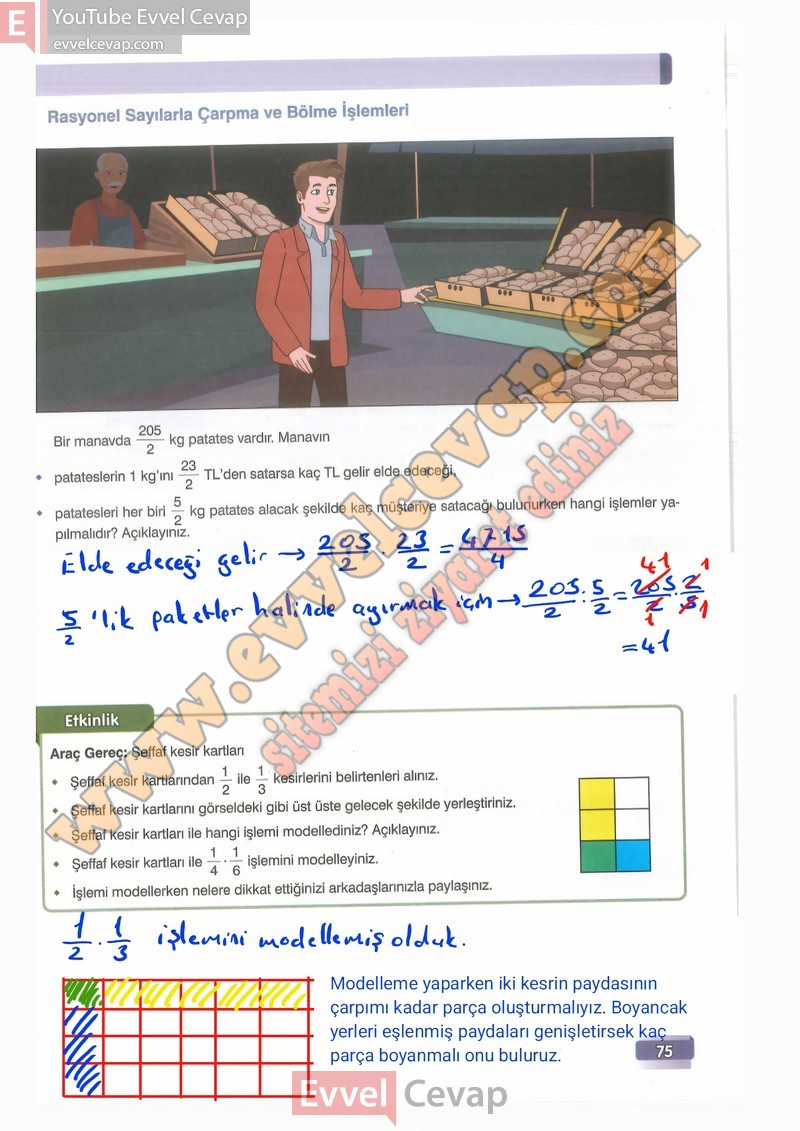 E YouTube Evvel Cevap
evvelcevap.com
Rasyonel Sayılarla Çarpma ve Bölme İşlemleri
Bir manavda 205/2 kg patates vardır. Manavın
• patateslerin 1 kg'ını 23/2 TL'den satarsa kaç TL gelir elde edeceği,
• patatesleri her biri 5/2 kg patates alacak şekilde kaç müşteriye satacağı bulunurken hangi işlemler ya-
pılmalıdır? Açıklayınız.
Elde edeceği gelir → 205/2 . 23/2 = 4715/4
5/2 'lik paketler halinde ayırmak için → 205/2 : 5/2 = 205/2 . 2/5
41 1
1 1
= 41
www.evvelcevap.com
sitemizi ziyaret ediniz
Etkinlik
Araç Gereç: Şeffaf kesir kartları
• Şeffaf kesir kartlarından 1/2 ile 1/3 kesirlerini belirtenleri alınız.
• Şeffaf kesir kartlarını görseldeki gibi üst üste gelecek şekilde yerleştiriniz.
• Şeffaf kesir kartları ile hangi işlemi modellediniz? Açıklayınız.
• Şeffaf kesir kartları ile 1/4 · 1/6 işlemini modelleyiniz.
• İşlemi modellerken nelere dikkat ettiğinizi arkadaşlarınızla paylaşınız.
1/2 . 1/3 işlemini modellemiş olduk.
Modelleme yaparken iki kesrin paydasının
çarpımı kadar parça oluşturmalıyız. Boyancak
yerleri eşlenmiş paydaları genişletirsek kaç
parça boyanmalı onu buluruz.
75
Evvel Cevap